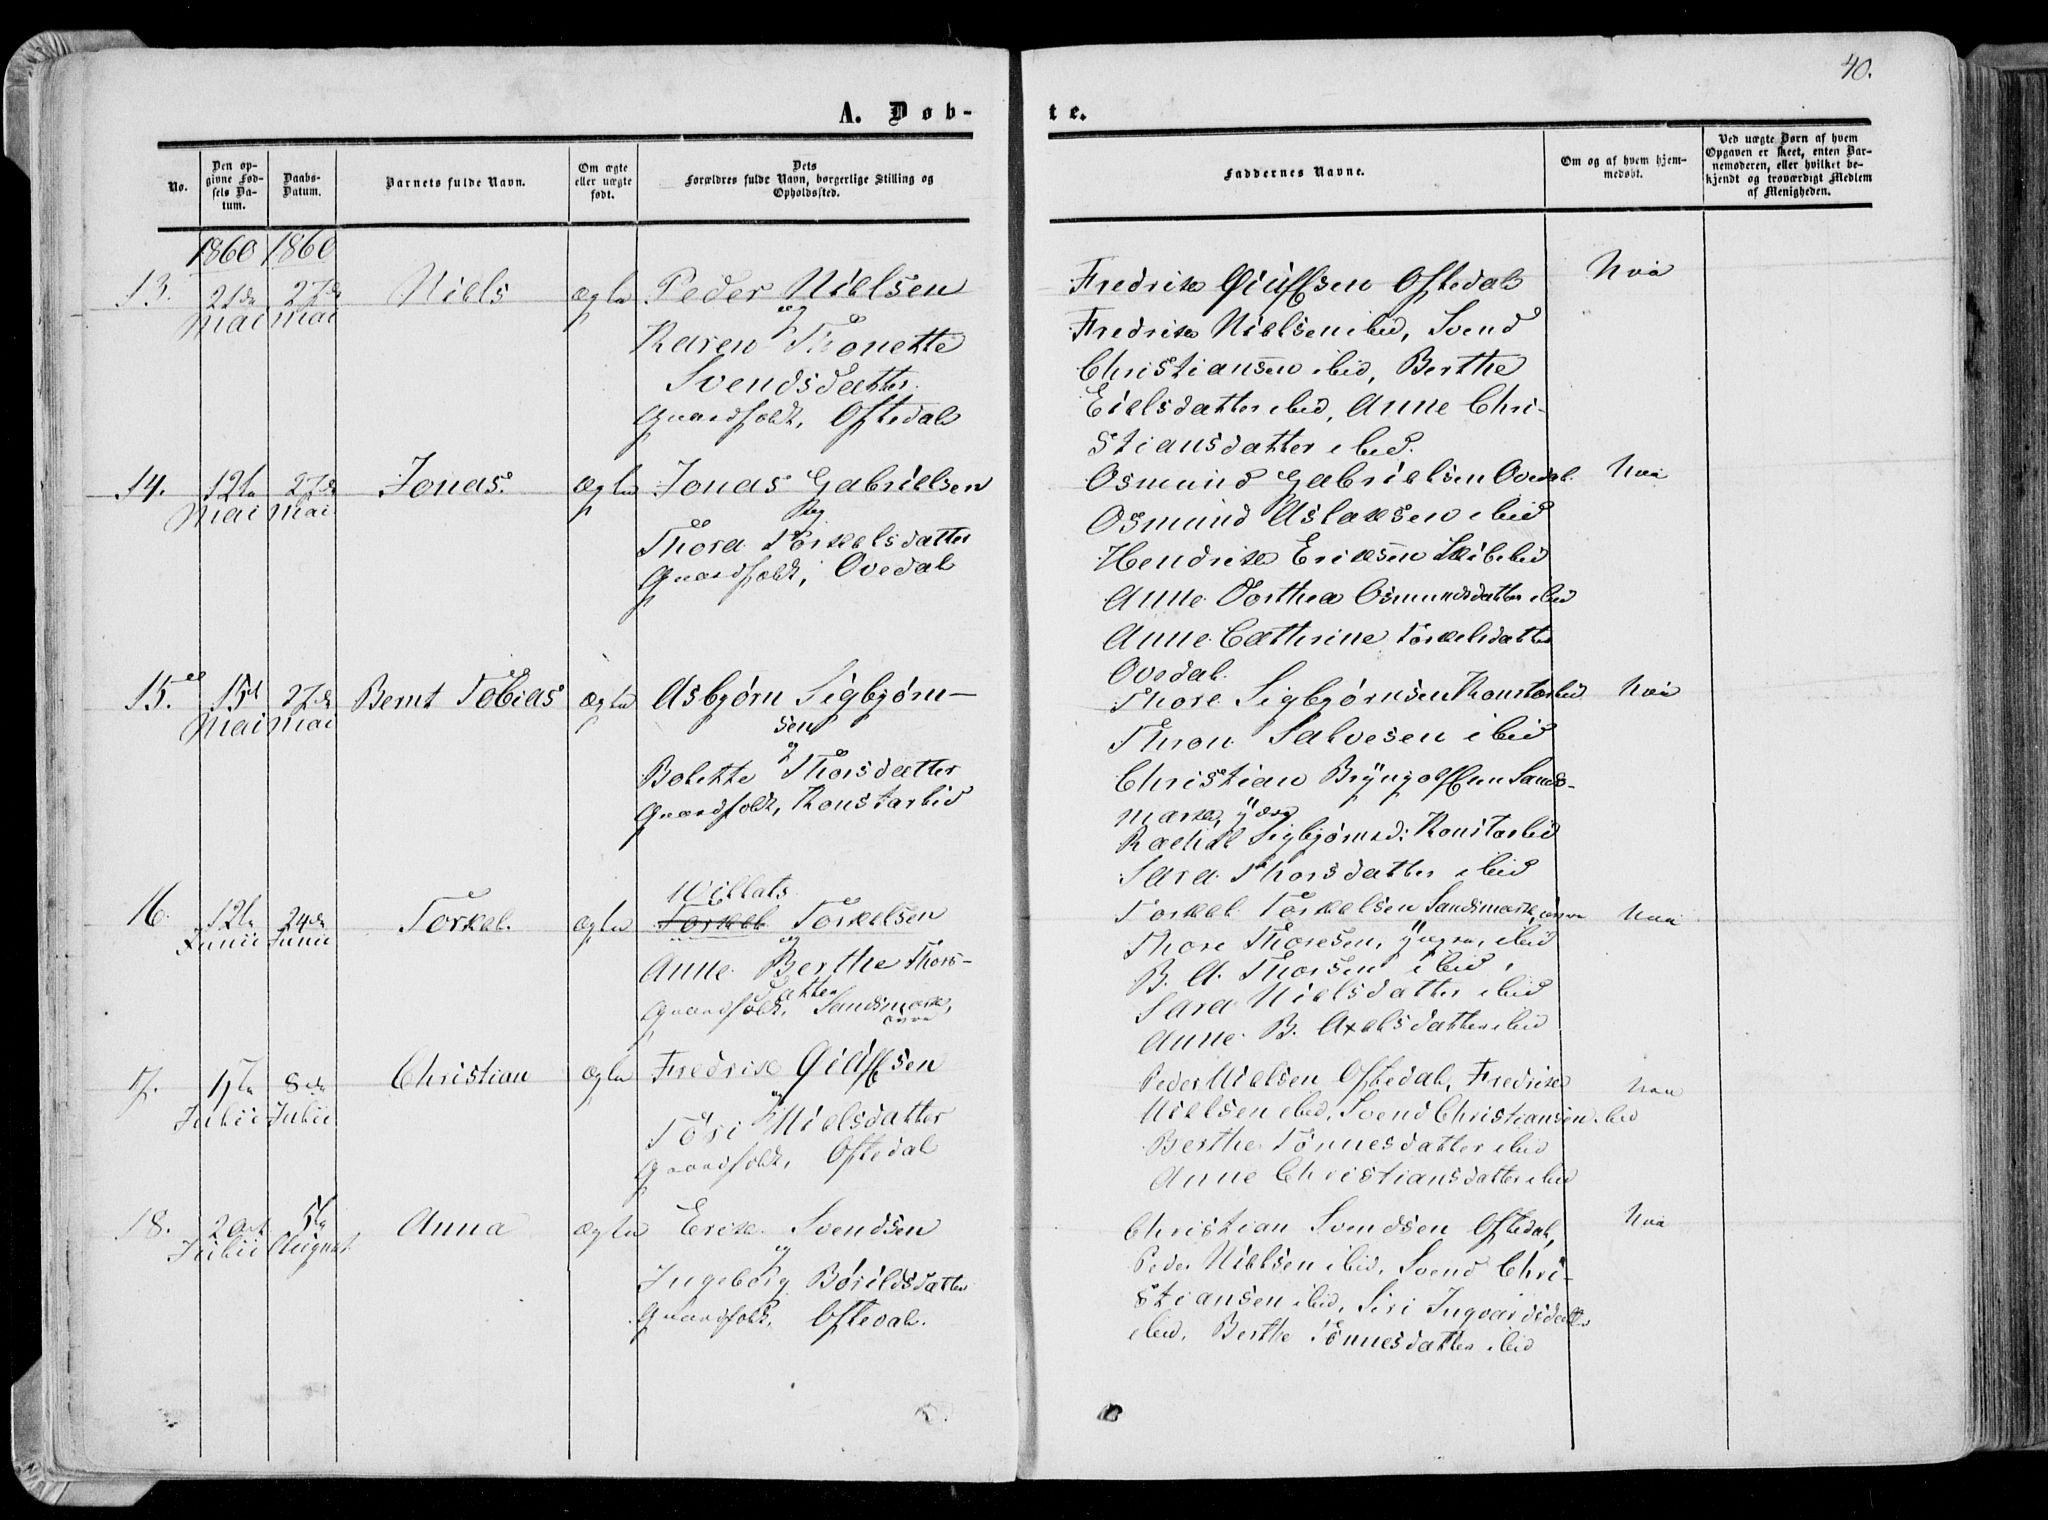 40.
A. Døb-
te.
No.
Den op-
givne Fød-
sels Da-
tum.
Daabs-
Datum.
Barnets fulde Navn.
Om ægte
eller uægte
født.
Dets
Forældres fulde Navn, borgerlige Stilling og
Opholdssted.
Faddernes Navne.
Om og af hvem hjem-
medøbt.
Ved uægte Børn af hvem
Opgaven er skeet, enten Bar-
nemoderen, eller hvilket be-
kjendt og troværdigt Medlem
af Menigheden.
1860 1860
13. 21de 27de Niels ægte Peder Nielsen
Mai Mai og
Karen Thonette
Svendsdatter
Gaardfolk, Oftedal
Fredrik Oftedal
Fredrik Nielsen ibid, Svend
Christiansen ibid, Berthe
Eielsdatter ibid, Anne Chri-
stiansdatter ibid.
14. 12te 27de Jonas. ægte Jonas Gabrielsen
Mai Mai og
Thora Torkelsdatter
Gaardfolk, Ovedal
Osmund Gabrielsen Ovedal.
Osmund Aslaksen ibid
Hendrik Eriksen ibid
Anne Dorthea Osmundsdatter ibid
Anne Cathrine Torkelsdatter
Ovedal.
15. 15de 27de Bernt Tobias ægte Asbjørn Sigbjørn-
Mai Mai sen
og
Bolette Thorsdatter
Gaardfolk, Konstalid
Thore Sigbjørnsen
Thron Salvesen ibid
Christian Bryngolfsen Sands-
mark, ydre
Rachel Sigbjørnsd:
Sara Thorsdatter ibid
16. 12te 24de Torkel. ægte Willats
Torkel Torkelsen
Junii Junii og
Anne Berthe Thors-
datter
Gaardfolk, Sandsmark,
Torkel Torkelsen Sandsmark,
Thore Thoresen, ibid
B. A. Thorsen ibid,
Sara Nielsdatter ibid
Anne B. Axelsdatter ibid
17. 8de Christian ægte Fredrik
Julii Julii og
Tori Nielsdatter
Gaardfolk, Oftedal
Peder Nielsen Oftedal, Fredrik
Nielsen ibid, Svend Christiansen ibid
Berthe Tønnesdatter ibid
Anne Christiansdatter ibid
18. 5te Anna ægte Erik Svendsen
Julii August og
Ingeborg Børildsdatter
Gaardfolk, Oftedal.
Christian Svendsen Oftedal,
Peder Nielsen ibid, Svend Chri-
stiansen ibid, Siri Ingvardsdatter
ibid, Berthe Tønnesdatter ibid